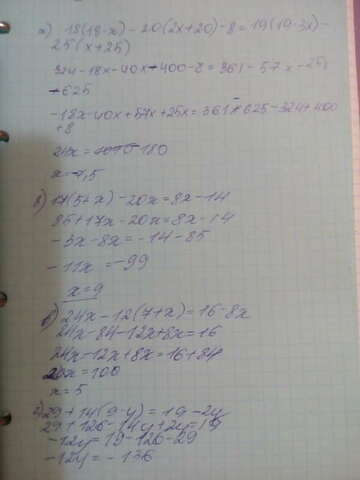 а) 18(18-x) - 20(2x+20) - 8 = 19(19-3x) -
25(x+25)
324 - 18x - 40x - 400 - 8 = 361 - 57x - 25x
- 625
-18x - 40x + 57x + 25x = 361 - 625 - 324 + 400
+ 8
24x = -180
x = -7,5
17(5+x) - 20x = 8x - 14
85 + 17x - 20x = 8x - 14
-3x - 8x = -14 - 85
-11x = -99
x = 9
24x - 12(7+x) = 16 - 8x
24x - 84 - 12x + 8x = 16
24x - 12x + 8x = 16 + 84
20x = 100
x = 5
г) 29 + 14(9-y) = 19 - 2y
29 + 126 - 14y + 2y = 19
-12y = 19 - 126 - 29
-12y = -136